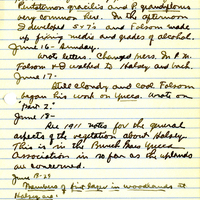 Pentstemon gracilis and P. grandiflorus
very common here. In the afternoon
I developed 5x7's and Folsom made
up fixing media and grades of alcohol.
June 16 - Sunday.
Wrote letters. Changed press. In P.M.
Folsom & I walked to Halsey and back.
June 17 -
Still cloudy and cool. Folsom
began his work on Yucca. Wrote on
"part 2."
June 18 -
See 1911 notes for the general
aspects of the vegetation about Halsey.
This is in the Bunch Grass Yucca
Association in so far as the uplands
are concerned.
June 18-29
Members of big layer in woodlands at
Halsey are: